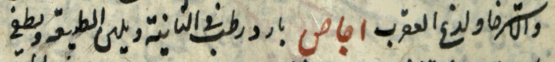 ولذع العقرب اجاص بارد رطب فى الثانية ويلين الطبيعة ويطفى